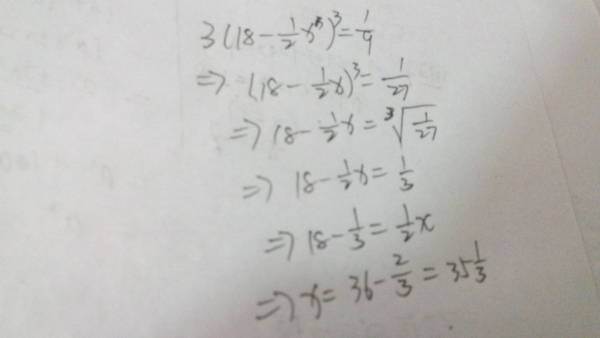 3(18-1/2x)³=1/9
⇒(18-1/2x)³=1/27
⇒18-1/2x=³√(1/27)
⇒18-1/2x=1/3
⇒18-1/3=1/2x
⇒x=36-2/3=35 1/3